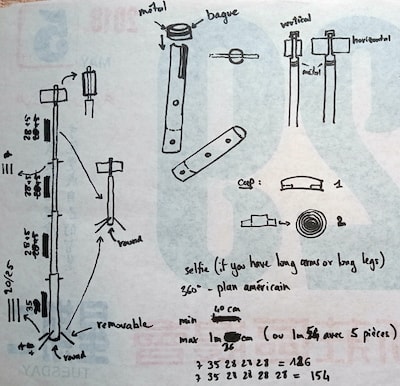 métal
bague
vertical
horizontal
métal
2018
5
28+5
28+5
28+5
20/25
35
round
removable
round
1
2
selfie (if you have long arms or long legs)
360° - plan américain
min 40 cm
max 1m 26 cm (ou 1m 54 avec 5 pièces)
7 35 28 28 28 = 126
7 35 28 28 28 28 = 154
TUESDAY